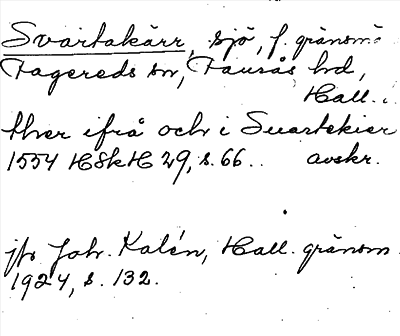 Svartakärr, sjö, f. gränsm.
Fagereds sn, Faurås hd,
Hall.
ther ifrå och i Suartekier
1554 HSkH 29, s. 66.. avskr.
jfr Joh. Kalén, Hall. gränsm.
1924, s. 132.